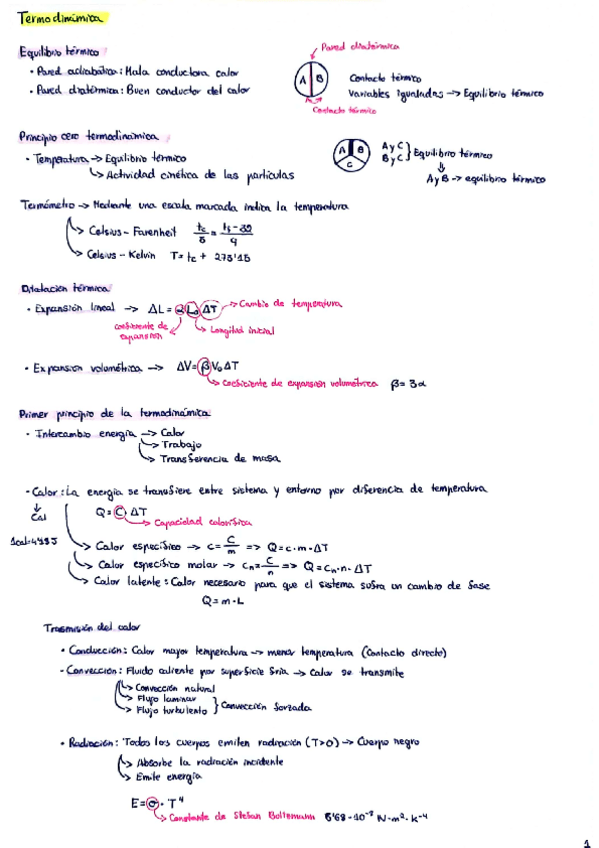 Termodinámica
Equilibrio térmico
Pared diatérmica
· Pared adiabática: Mala conductora calor
· Pared diatérmica: Buen conductor del calor
A B
Contacto térmico
Variables igualadas → Equilibrio térmico
Contacto térmico
Principio cero termodinámica
· Temperatura → Equilibrio térmico
↳ Actividad cinética de las partículas
A B C
A y C } Equilibrio térmico
B y C
↓
A y B → equilibrio térmico
Termómetro → Mediante una escala marcada indica la temperatura
↳ Celsius - Farenheit tc/5 = tf-32/9
↳ Celsius - Kelvin T = tc + 273'15
Dilatación térmica
· Expansión lineal → ΔL = α L₀ ΔT → Cambio de temperatura
coeficiente de expansión
↳ Longitud inicial
· Expansion volumétrica → ΔV = β V₀ ΔT
↳ Coeficiente de expansión volumétrica β = 3α
Primer principio de la termodinámica
· Intercambio energía → Calor
↳ Trabajo
↳ Transferencia de masa
· Calor: La energía se transfiere entre sistema y entorno por diferencia de temperatura
↓
Cal
Q = C · ΔT
↳ Capacidad calorífica
↳ Calor específico → c = C/m => Q = c · m · ΔT
↳ Calor específico molar → cn = C/n => Q = cn · n · ΔT
↳ Calor latente: Calor necesario para que el sistema sufra un cambio de fase
Q = m · L
Trasmisión del calor
· Conducción: Calor mayor temperatura → menor temperatura (Contacto directo)
- Convección: Fluido caliente por superficie fría → Calor se transmite
↳ Convección natural
↳ Flujo laminar
↳ Flujo turbulento } Convección forzada
· Radiación: Todos los cuerpos emiten radiación (T>0) → Cuerpo negro
↳ Absorbe la radiación incidente
↳ Emite energía
E = σ · T⁴
↳ Constante de Stefan Boltzmann N·m²·K⁻⁴
1